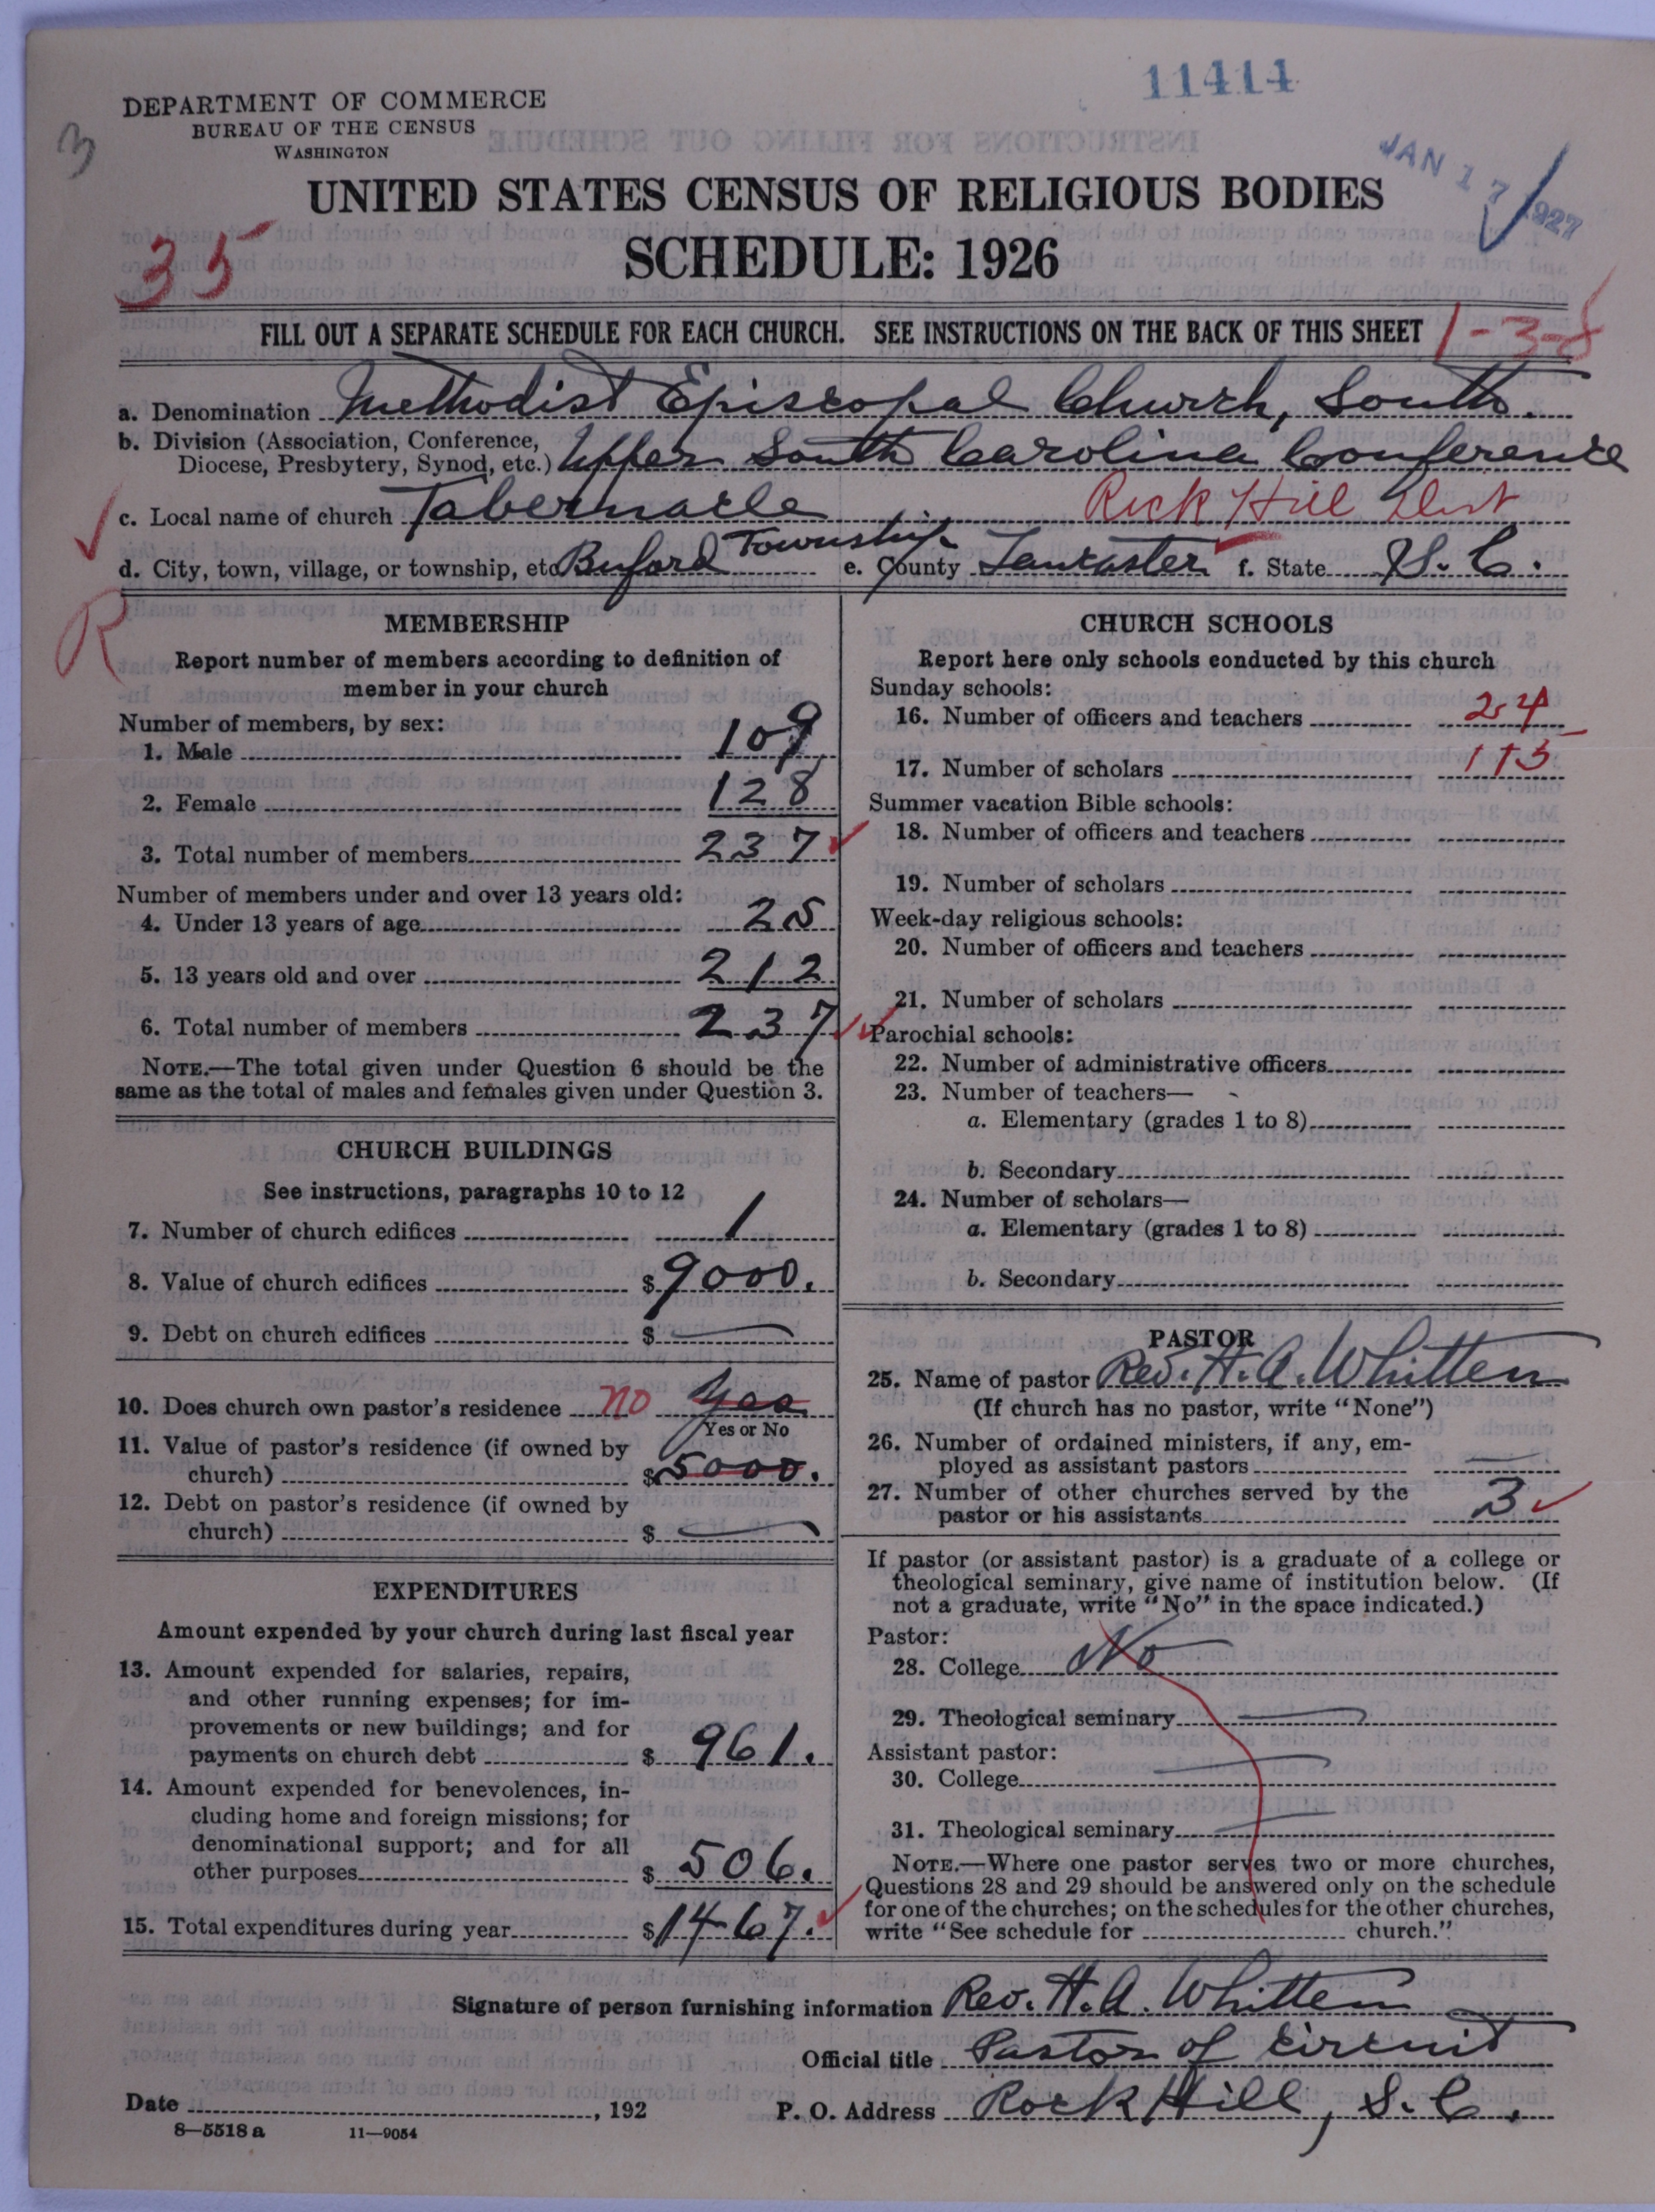 11414
DEPARTMENT OF COMMERCE
BUREAU OF THE CENSUS
WASHINGTON
3
JAN 17 1927
UNITED STATES CENSUS OF RELIGIOUS BODIES
SCHEDULE: 1926
35
FILL OUT A SEPARATE SCHEDULE FOR EACH CHURCH. SEE INSTRUCTIONS ON THE BACK OF THIS SHEET 1-3-8
a. Denomination Methodist Episcopal Church, South.
b. Division (Association, Conference,
Diocese, Presbytery, Synod, etc.) Upper South Carolina Conference
c. Local name of church Tabernacle Rock Hill Dist
d. City, town, village, or township, etc. Buford Township e. County Lancaster f. State S. C.
R
MEMBERSHIP
Report number of members according to definition of
member in your church
Number of members, by sex:
1. Male 109
2. Female 128
3. Total number of members 237
Number of members under and over 13 years old:
4. Under 13 years of age 25
5. 13 years old and over 212
6. Total number of members 237
NOTE.—The total given under Question 6 should be the
same as the total of males and females given under Question 3.
CHURCH BUILDINGS
See instructions, paragraphs 10 to 12
7. Number of church edifices 1
8. Value of church edifices $ 9000.
9. Debt on church edifices $ —
10. Does church own pastor's residence no Yes
Yes or No
11. Value of pastor's residence (if owned by
church) $ 5000.
12. Debt on pastor's residence (if owned by
church) $ —
EXPENDITURES
Amount expended by your church during last fiscal year
13. Amount expended for salaries, repairs,
and other running expenses; for im-
provements or new buildings; and for
payments on church debt $ 961.
14. Amount expended for benevolences, in-
cluding home and foreign missions; for
denominational support; and for all
other purposes $ 506.
15. Total expenditures during year $ 1467.
CHURCH SCHOOLS
Report here only schools conducted by this church
Sunday schools:
16. Number of officers and teachers 24
17. Number of scholars 115
Summer vacation Bible schools:
18. Number of officers and teachers
19. Number of scholars
Week-day religious schools:
20. Number of officers and teachers
21. Number of scholars
Parochial schools:
22. Number of administrative officers
23. Number of teachers—
a. Elementary (grades 1 to 8)
b. Secondary
24. Number of scholars—
a. Elementary (grades 1 to 8)
b. Secondary
PASTOR
25. Name of pastor Rev. H. A. Whitten
(If church has no pastor, write "None")
26. Number of ordained ministers, if any, em-
ployed as assistant pastors —
27. Number of other churches served by the
pastor or his assistants 3
If pastor (or assistant pastor) is a graduate of a college or
theological seminary, give name of institution below. (If
not a graduate, write "No" in the space indicated.)
Pastor:
28. College No
29. Theological seminary —
Assistant pastor:
30. College —
31. Theological seminary —
NOTE.—Where one pastor serves two or more churches,
Questions 28 and 29 should be answered only on the schedule
for one of the churches; on the schedules for the other churches,
write "See schedule for church."
Signature of person furnishing information Rev. H. A. Whitten
Official title Pastor of Circuit
Date , 192 P. O. Address Rock Hill, S. C.
8—5518 a 11—9054